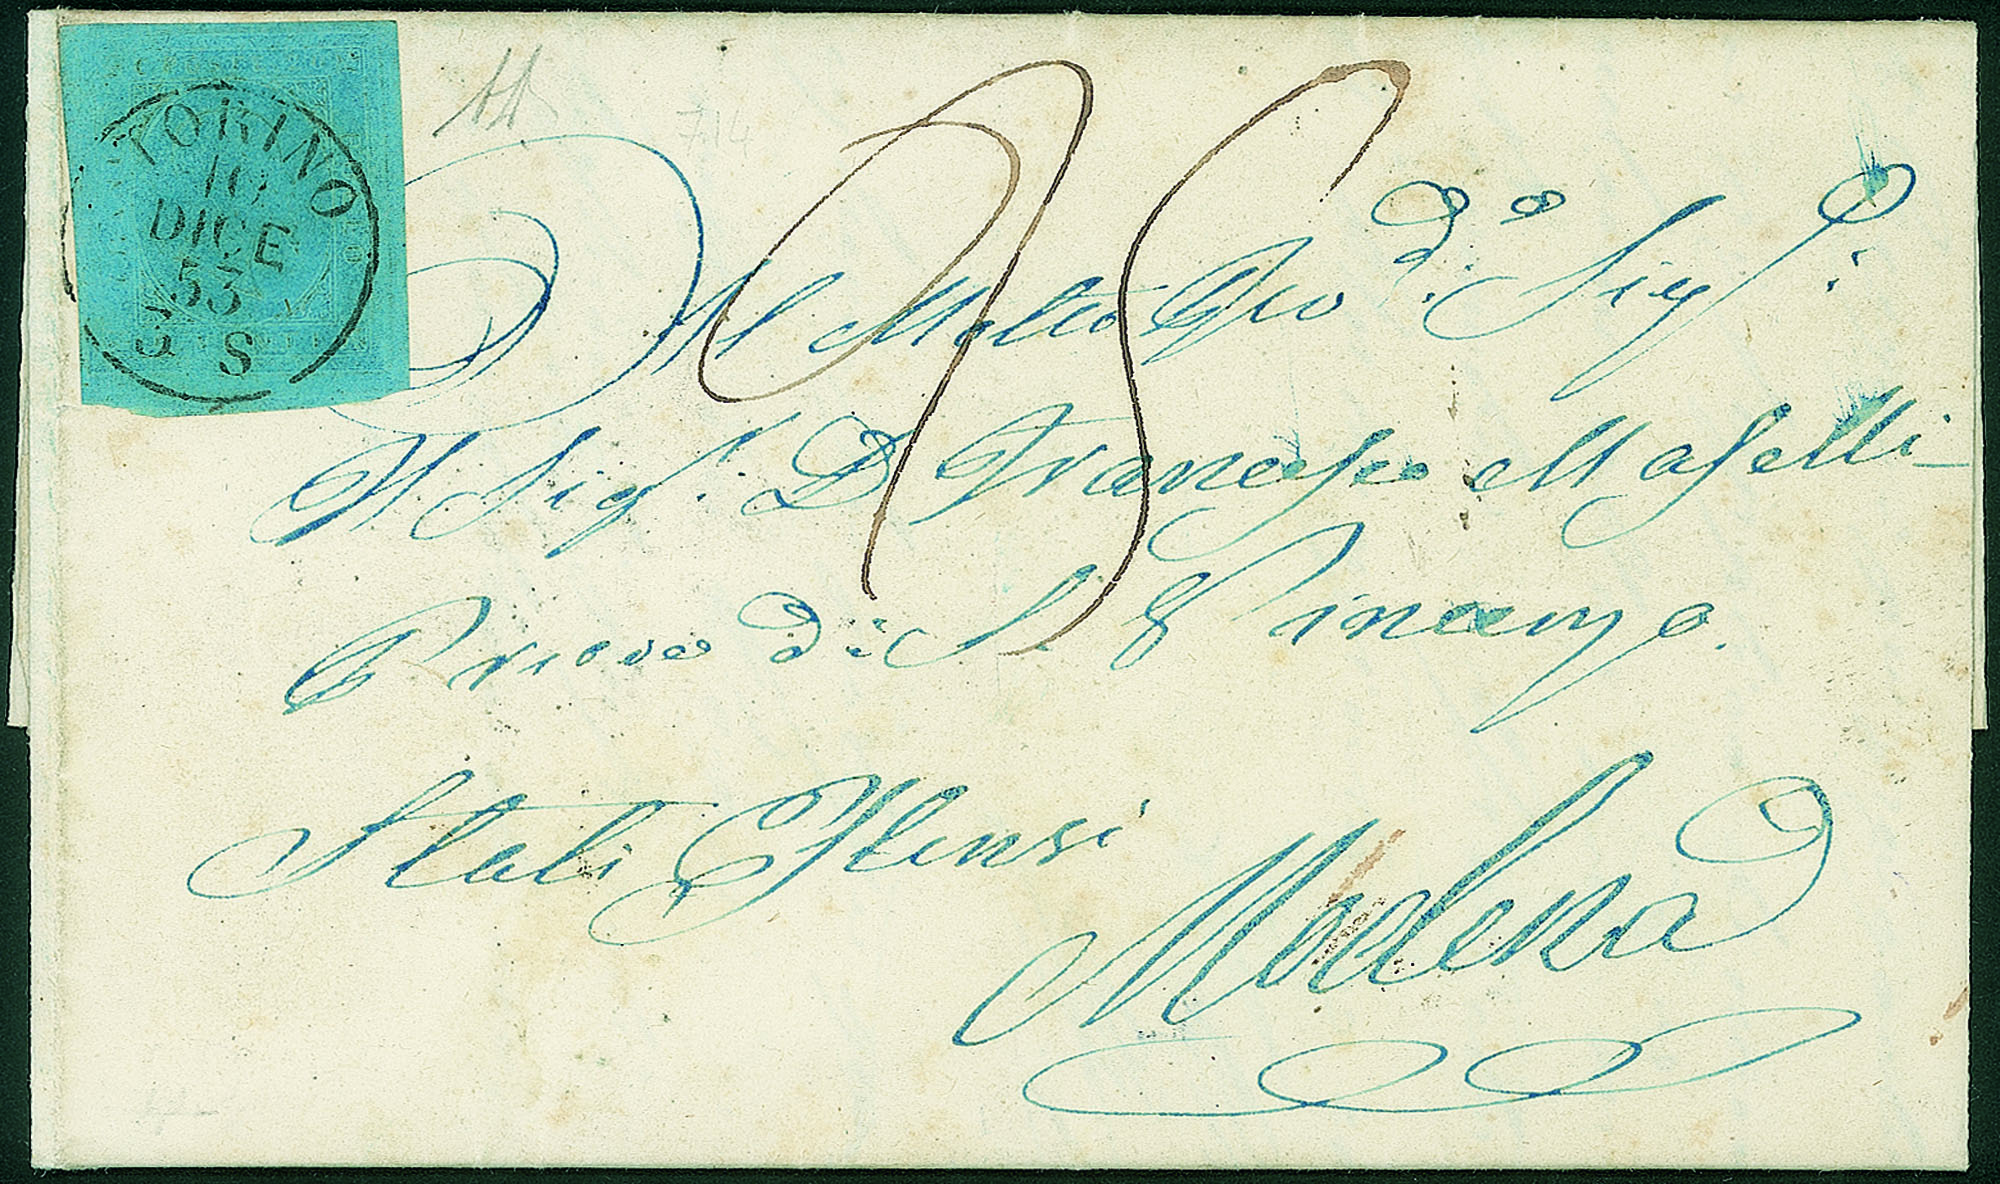 TORINO
10
DICE
53
S
7.14
25
Al Molto Rev.do Sig.r
Il Sig.r D. Francesco Maselli
Priore di S.
Stati Estensi
Modena